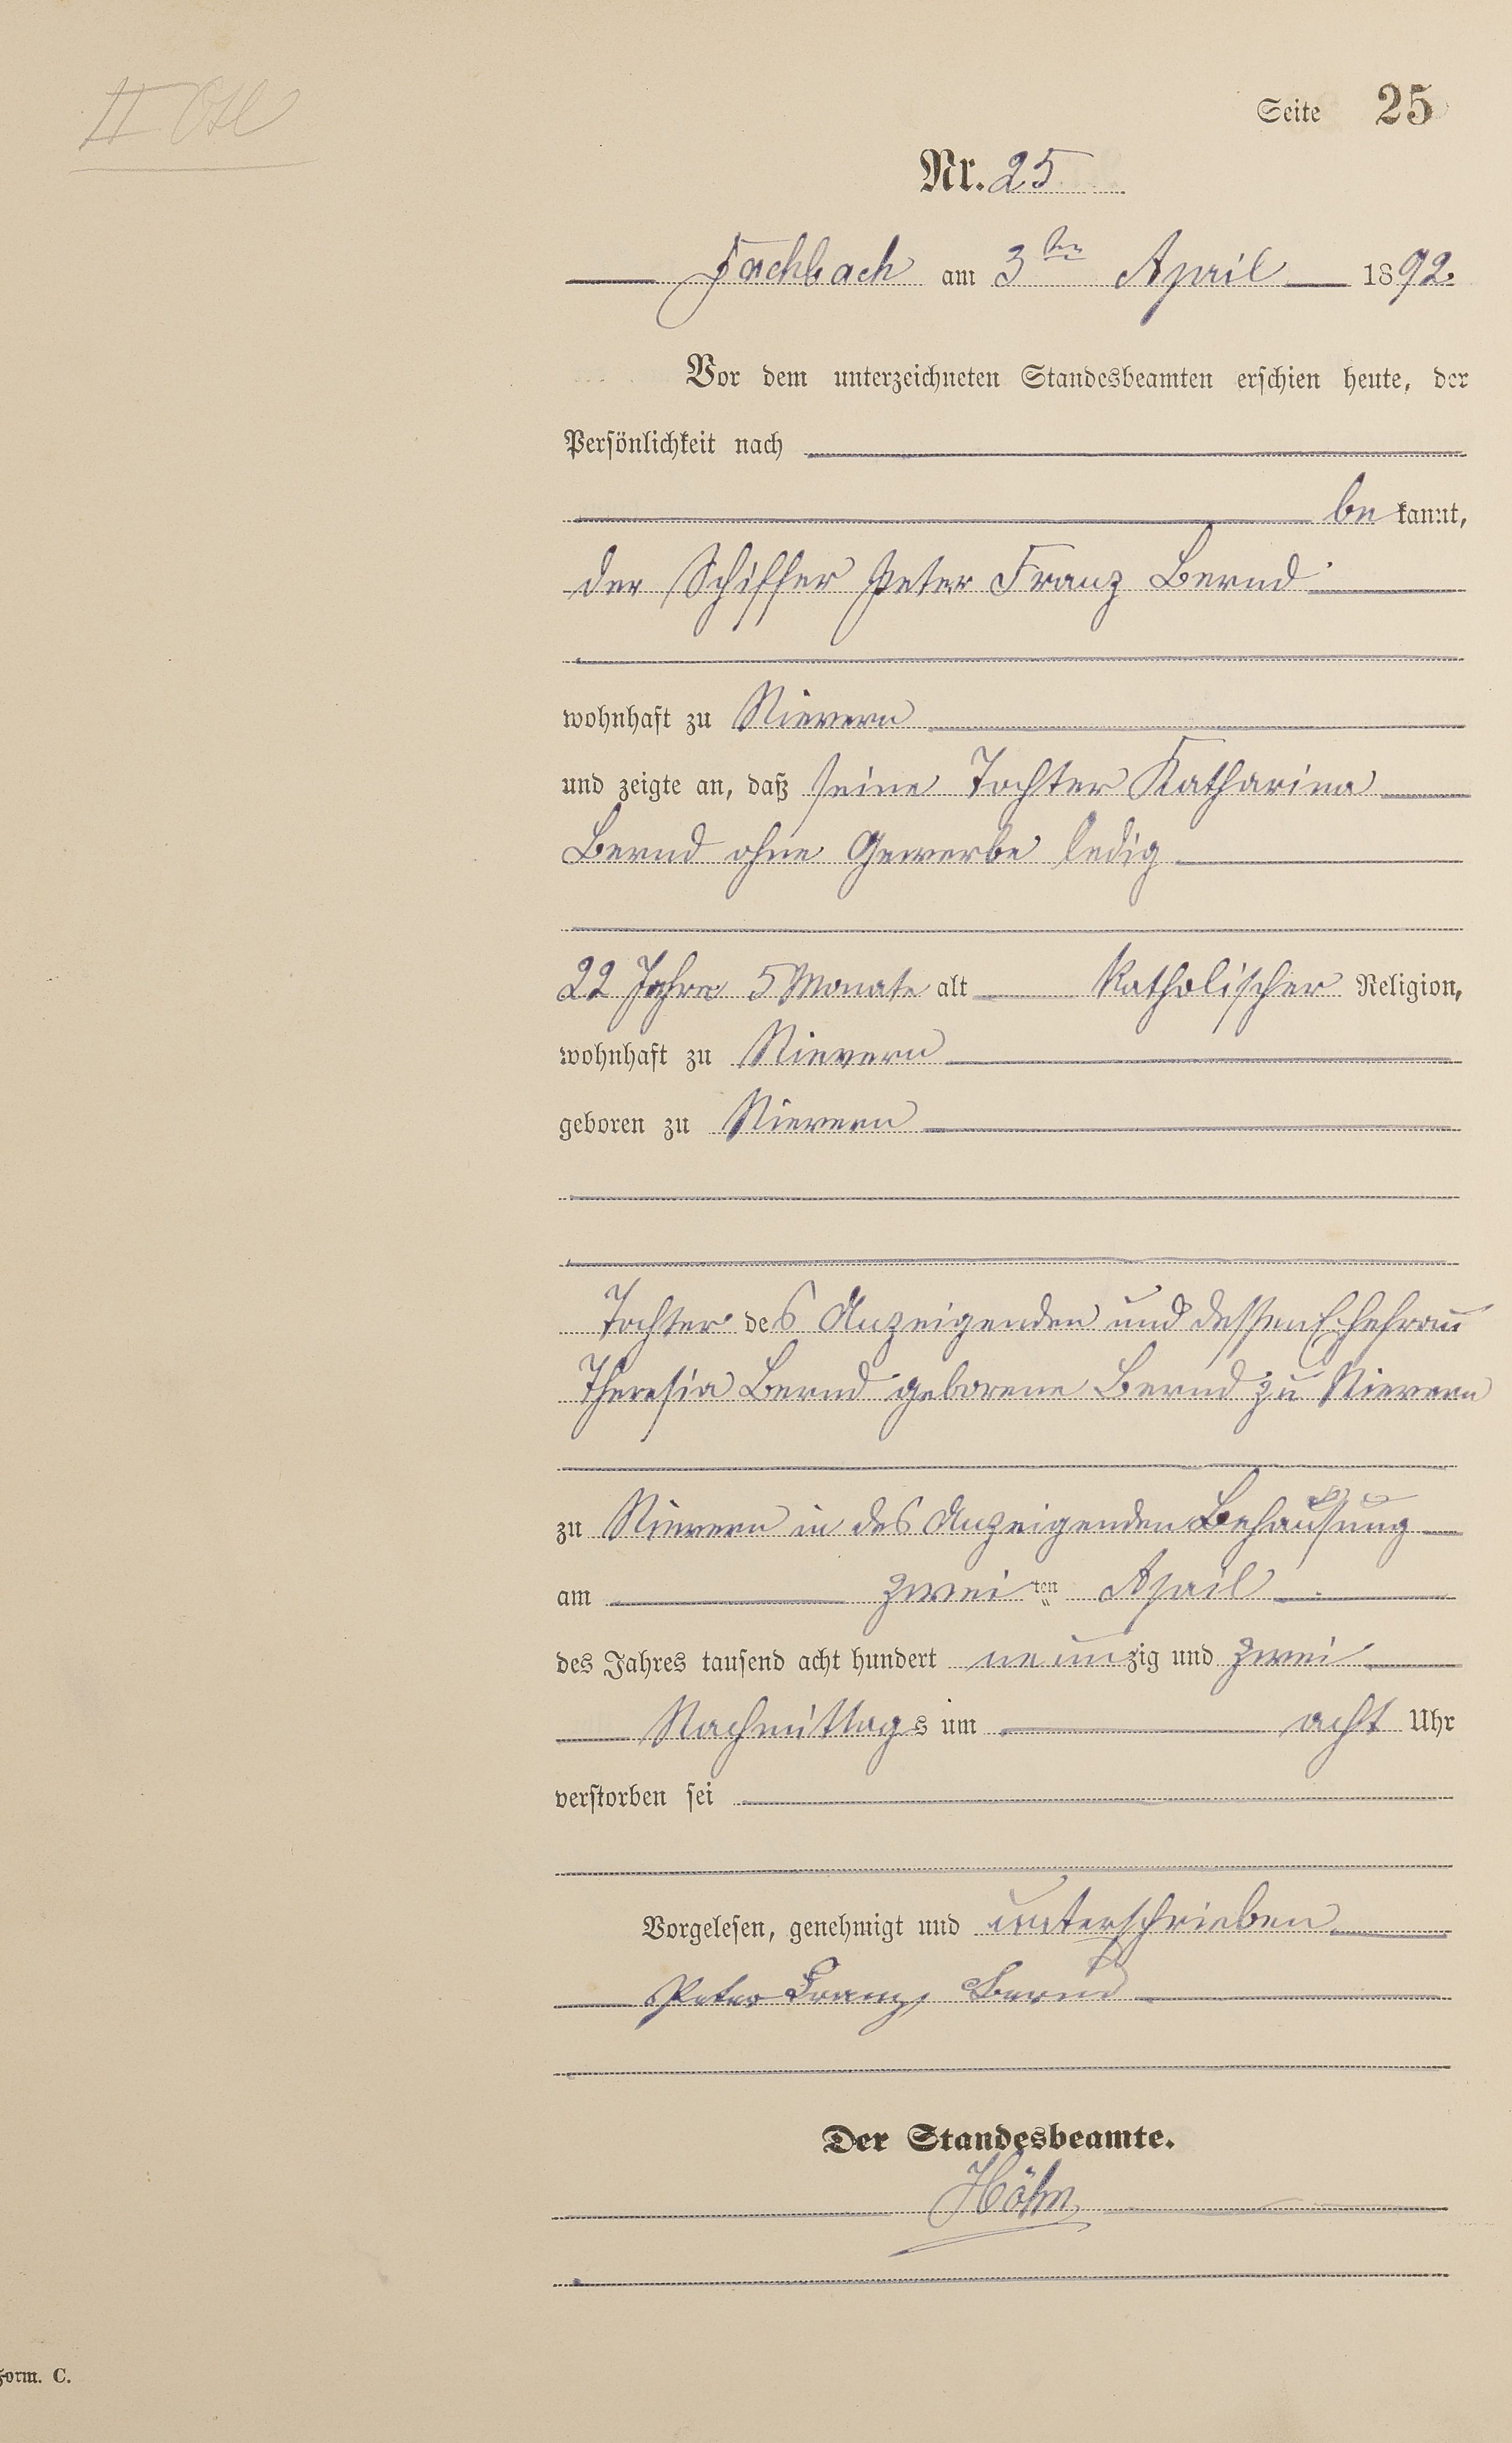 Seite 25
Nr. 25
Fachbach am 3ten April 1892.
Vor dem unterzeichneten Standesbeamten erschien heute, der
Persönlichkeit nach
be kannt,
der Schiffer Peter Franz Bernd
wohnhaft zu Nievern
und zeigte an, daß seine Tochter Katharina
Bernd ohne Gewerbe ledig
22 Jahre 5 Monate alt katholischer Religion,
wohnhaft zu Nievern
geboren zu Nievern
Tochter des Anzeigenden und dessen Ehefrau
Theresia Bernd geborene Bernd zu Nievern
zu Nievern in des Anzeigenden Behausung
am zweiten April
des Jahres tausend acht hundert neunzig und zwei
Nachmittags um acht Uhr
verstorben sei
Vorgelesen, genehmigt und unterschrieben
Peter Franz Bernd
Der Standesbeamte.
Höhn
Form. C.